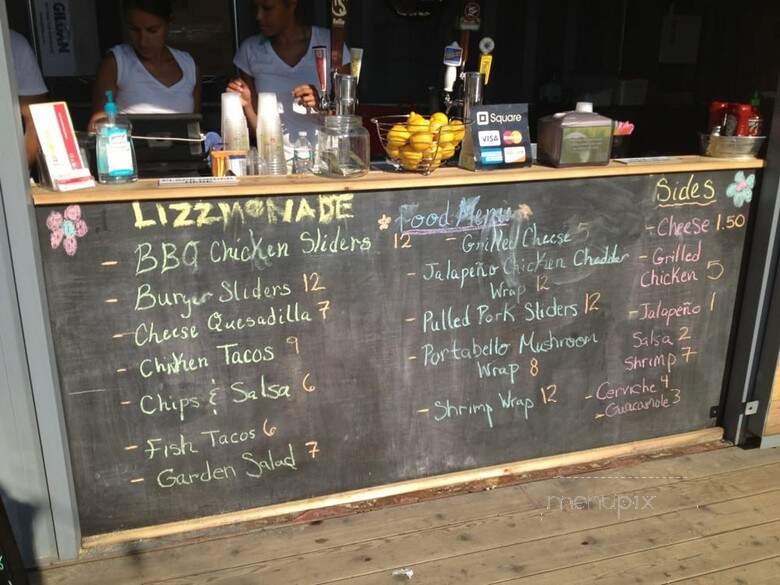 GILLIAN
Square
VISA
MasterCard
LIZZMONADE
Food Menu
- BBQ Chicken Sliders 12
- Burger Sliders 12
- Cheese Quesadilla 7
- Chicken Tacos 9
- Chips & Salsa 6
- Fish Tacos 6
- Garden Salad 7
- Grilled Cheese 5
- Jalapeño Chicken Cheddar
Wrap 12
- Pulled Pork Sliders 12
- Portabello Mushroom
Wrap 8
- Shrimp Wrap 12
Sides
- Cheese 1.50
- Grilled
Chicken 5
- Jalapeño 1
Salsa 2
Shrimp 7
- Cerviche 4
- Guacamole 3
menupix